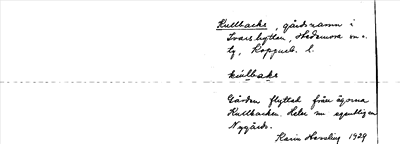 Kullbacks, gårdsnamn i
Ivarshyttan, Hedemora sn.
Kopparb. l.
kúlbaks
Gården flyttad från ägorna
Kullbacken. Heter nu egentligen
Nygårds.
Karin Hessling 1929